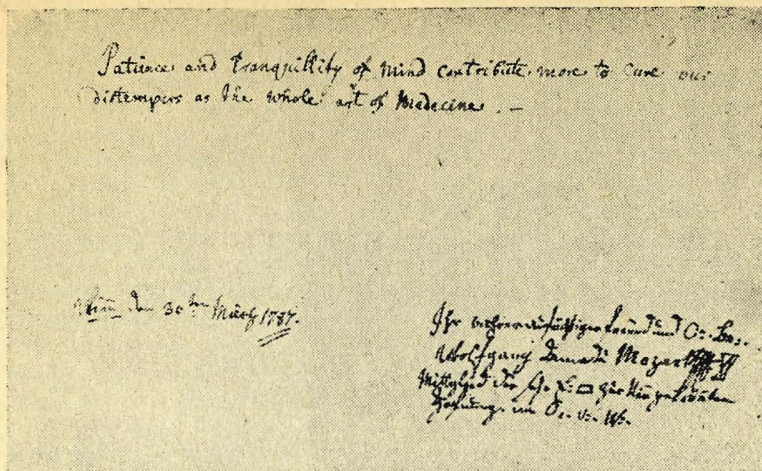 Patience and tranquillity of mind contribute more to cure our
distempers as the whole art of Medecine. —
Wien den 30ten März 1787.
Ihr wahrer aufrichtiger freund und O:. Br:.
Wolfgang Amadè Mozart
Mitglied der S. E. □ zur Neugekrönten
Hofnung im O:. v:. W:.